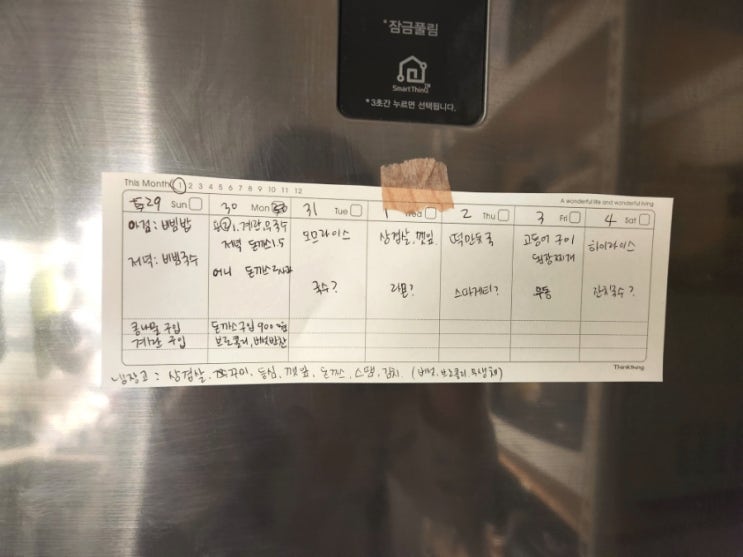 *잠금풀림
SmartThings
*3초간 누르면 선택됩니다.
This Month 1 2 3 4 5 6 7 8 9 10 11 12
A wonderful life and wonderful living
29 Sun 30 Mon 31 Tue 1 Wed 2 Thu 3 Fri 4 Sat
아점: 비빔밥
저녁: 비빔국수
콩나물 구입
계란 구입
저녁 돈까스 1.5
돈까스
돈까스구입 900
브로콜리,
오므라이스
국수?
삼겹살, 깻잎
라면?
떡만둣국
스파게티?
고등어 구이
된장찌개
우동
하이라이스
잔치국수?
냉장고: 삼겹살, 쭈꾸미, 등심, 깻잎, 돈까스, 스팸, 김치.
Thinkthing